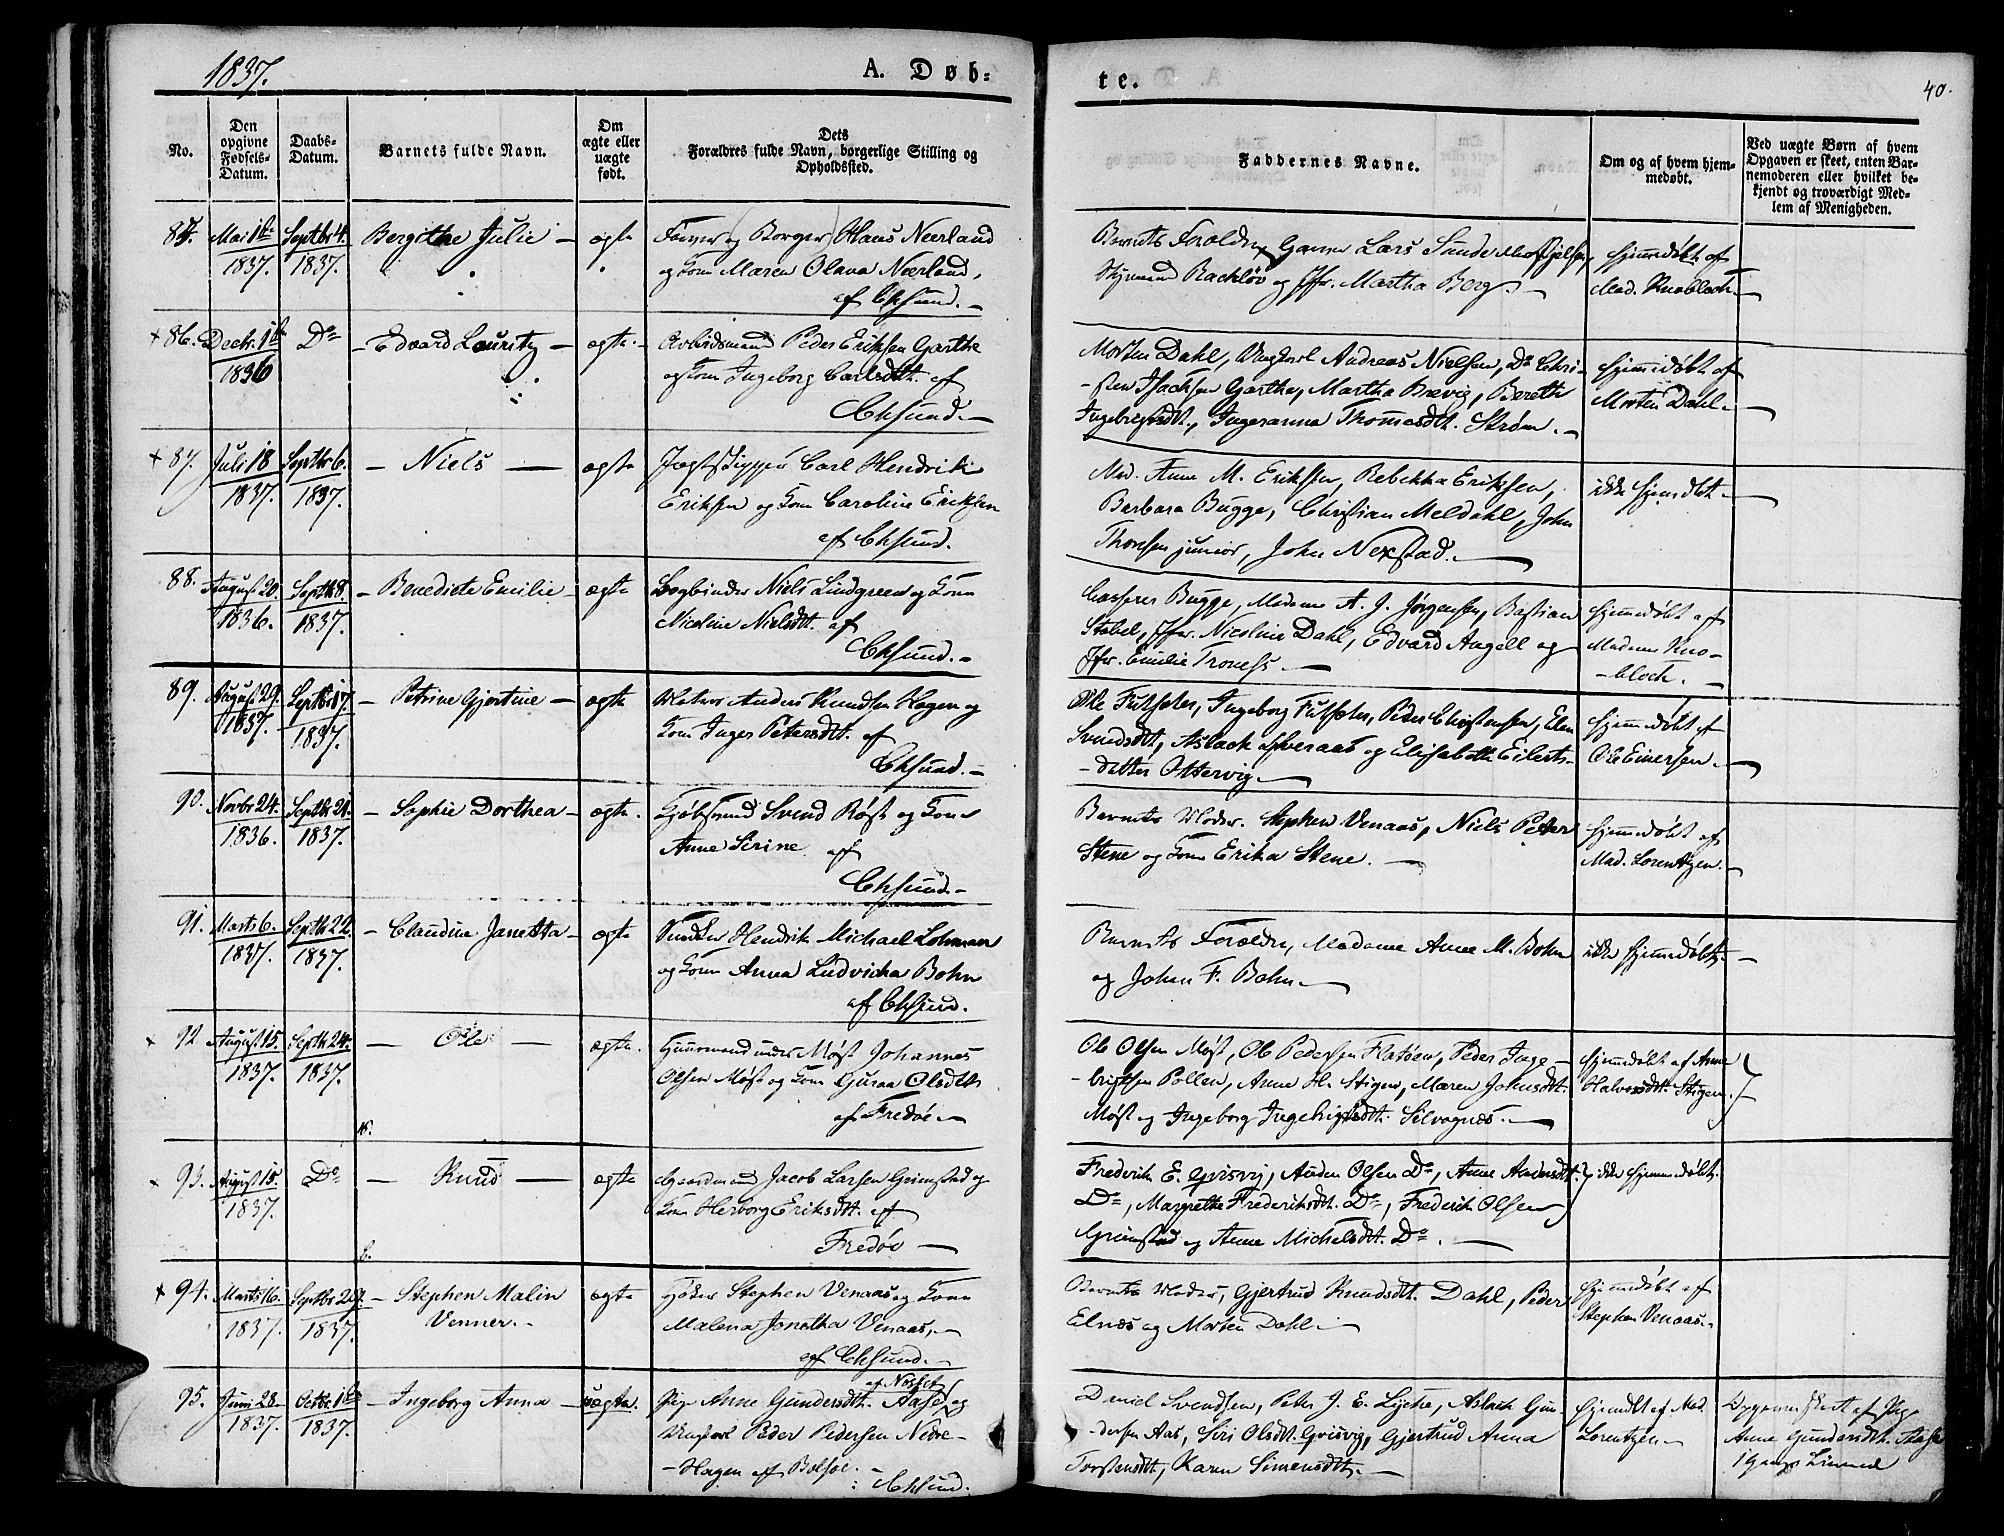 1837.
A. Døb-
te.
40.
No.
Den
opgivne
Fødsels-
Datum.
Daabs-
Datum.
Barnets fulde Navn.
Om
ægte eller
uægte
født.
Dets
Forældres fulde Navn, borgerlige Stilling og
Opholdssted.
Faddernes Navne.
Om og af hvem hjem-
medøbt.
Ved uægte Børn af hvem
Opgaven er skeet, enten Bar-
nemoderen eller hvilket be-
kjendt og troværdigt Med-
lem af Menigheden.
Mai 1te Septbr 4. Bergithe Julie – ægte Farver og Borger Hans Neerland
1837. 1837. og Kone Maren Olava Neerland,
af Chsund. –
Barnets Forældre, Lars Sunde
og Jfr. Martha Berg. –
hjemmedøbt af
Mad. Knobloch –
+ 86. Decbr. 1te Do – Edvard Lauritz – ægte. Arbeidsmand Peder Eriksen Garthe
1836 og Kone Ingeborg Carlsdtt. af
Chsund. –
Morten Dahl, Andreas Nielsen, Do Chri-
-sten Isachsen Garthe, Martha Brevig, Bereth
Ingebrigtsdt., Ingeranna Thomasdt. Strøm. –
hjemmedøbt af
Morten Dahl. –
+ 87. Juli 18 Septbr 6. – Niels – ægte Jagtskipper Carl Hendrik
1837. 1837. Eriksen og Kone Caroline Ericksen
af Chsund.
Mad. Anne M. Eriksen, Rebekka Eriksen,
Barbara Bugge, Christian Meldahl, John
Thomsen junior, John Nexstad. –
ikke hjemdøbt –
88. August 20. Septb 8. – Benedicte Emilie – ægte Bogbinder Niels Lindgreen og Kone
1836. 1837. Nicoline Nielsdt. af
Chsund. –
Casserer Bugge, Madame A. J. Jørgensen, Bastian
Stabel, Jfr. Nicoline Dahl, Edvard Angell og
Jfr. Emilie Troness –
hjemmedøbt af
Madame Kno-
-bloch. –
89. August 29. Septbr 17. – Petrine Gjertine – ægte Anders Knudsen Hagen og
1837. 1837. Kone Inger Petersdt. af
Chsund. –
Ole Futsæter, Ingeborg Futsæter, Peder Christensen, Elen
Svendsdt, Aslack og Elisabeth Eilerts-
-datter Ottervig –
hjemmedøbt af
Ole Einersen. –
90. Novbr 24. Septbr 21. – Sophie Dorthea – ægte. Kjøbmand Svend Røst og Kone
1836. 1837. Anne Serine af
Chsund. –
Barnets Moder. Stephen Venaas, Niels Peter
Stene og Kone Erika Stene. –
hjemmedøbt af
Mad. Lorentzen. –
91. Marts 6. Septbr 22. – Claudine Janetta – ægte Hendrik Michael Lohman
1837. 1837. og Kone Anna Ludvicka Bohn
af Chsund.
Barnets Forældre, Madame Anne M. Bohn
og Johan F. Bohn –
ikke hjemmedøbt. –
92 August 15. Septb 24. – Ole – ægte. Huusmand under Møst Johannes
1837. 1837. Olsen Møst og Kone Guraa Olsdtt
af Fredøe –
Ole Olsen Møst, Ole Pedersen Flatøen, Peder Inge-
-brigtsen Pollen, Anne H. Stigen, Maren Johnsdt.
Møst og Ingeborg Ingebrigtsdt. Silvagnæs. –
hjemmedøbt af Anne
Halvorsdt. Stigen. –
93. August 15. Do – Knud – ægte Gaardmand Jacob Larsen Grimstad og
1837. Kone Herborg Eriksdt. af
Fredøe –
Frederik E. Qvisvig, Auden Olsen Do, Anne Andersdt.
Do, Margrethe Frederiksdt. Do, Frederik Olsen
Grimstad og Anne Michelsdt. Do. –
ikke hjemmedøbt.
+ 94. Marts 16. Septbr 29. – Stephen Malin ægte Høker Stephen Venaas og Kone
1837. 1837. Venner. – Malena Jonetha Venaas, –
af Chsund. –
Barnets Moder, Gjertrud Knudsdt. Dahl, Peder
Elnæs og Morten Dahl –
hjemmedøbt af
Stephen Venaas. –
95. Juni 28 Octbr 1te – Ingeborg Anna – uægte. Pige Anne Gundersdt. Aase og
af Nosset
1837. 1837. Ungkarl Peder Pedersen Nedre-
-Hagen af Bolsøe. –
Chsund.
Daniel Svendsen, Peter J. E. Lyche, Aslack Gun-
-dersen Aas, Siri Olsdt. Qvisvig, Gjertrud Anna
Torstensdt, Karen Simensdt. –
hjemdt af Mad.
Lorentzen –
Opgaven skeet af Pige
Anne Gundersdt. Aase